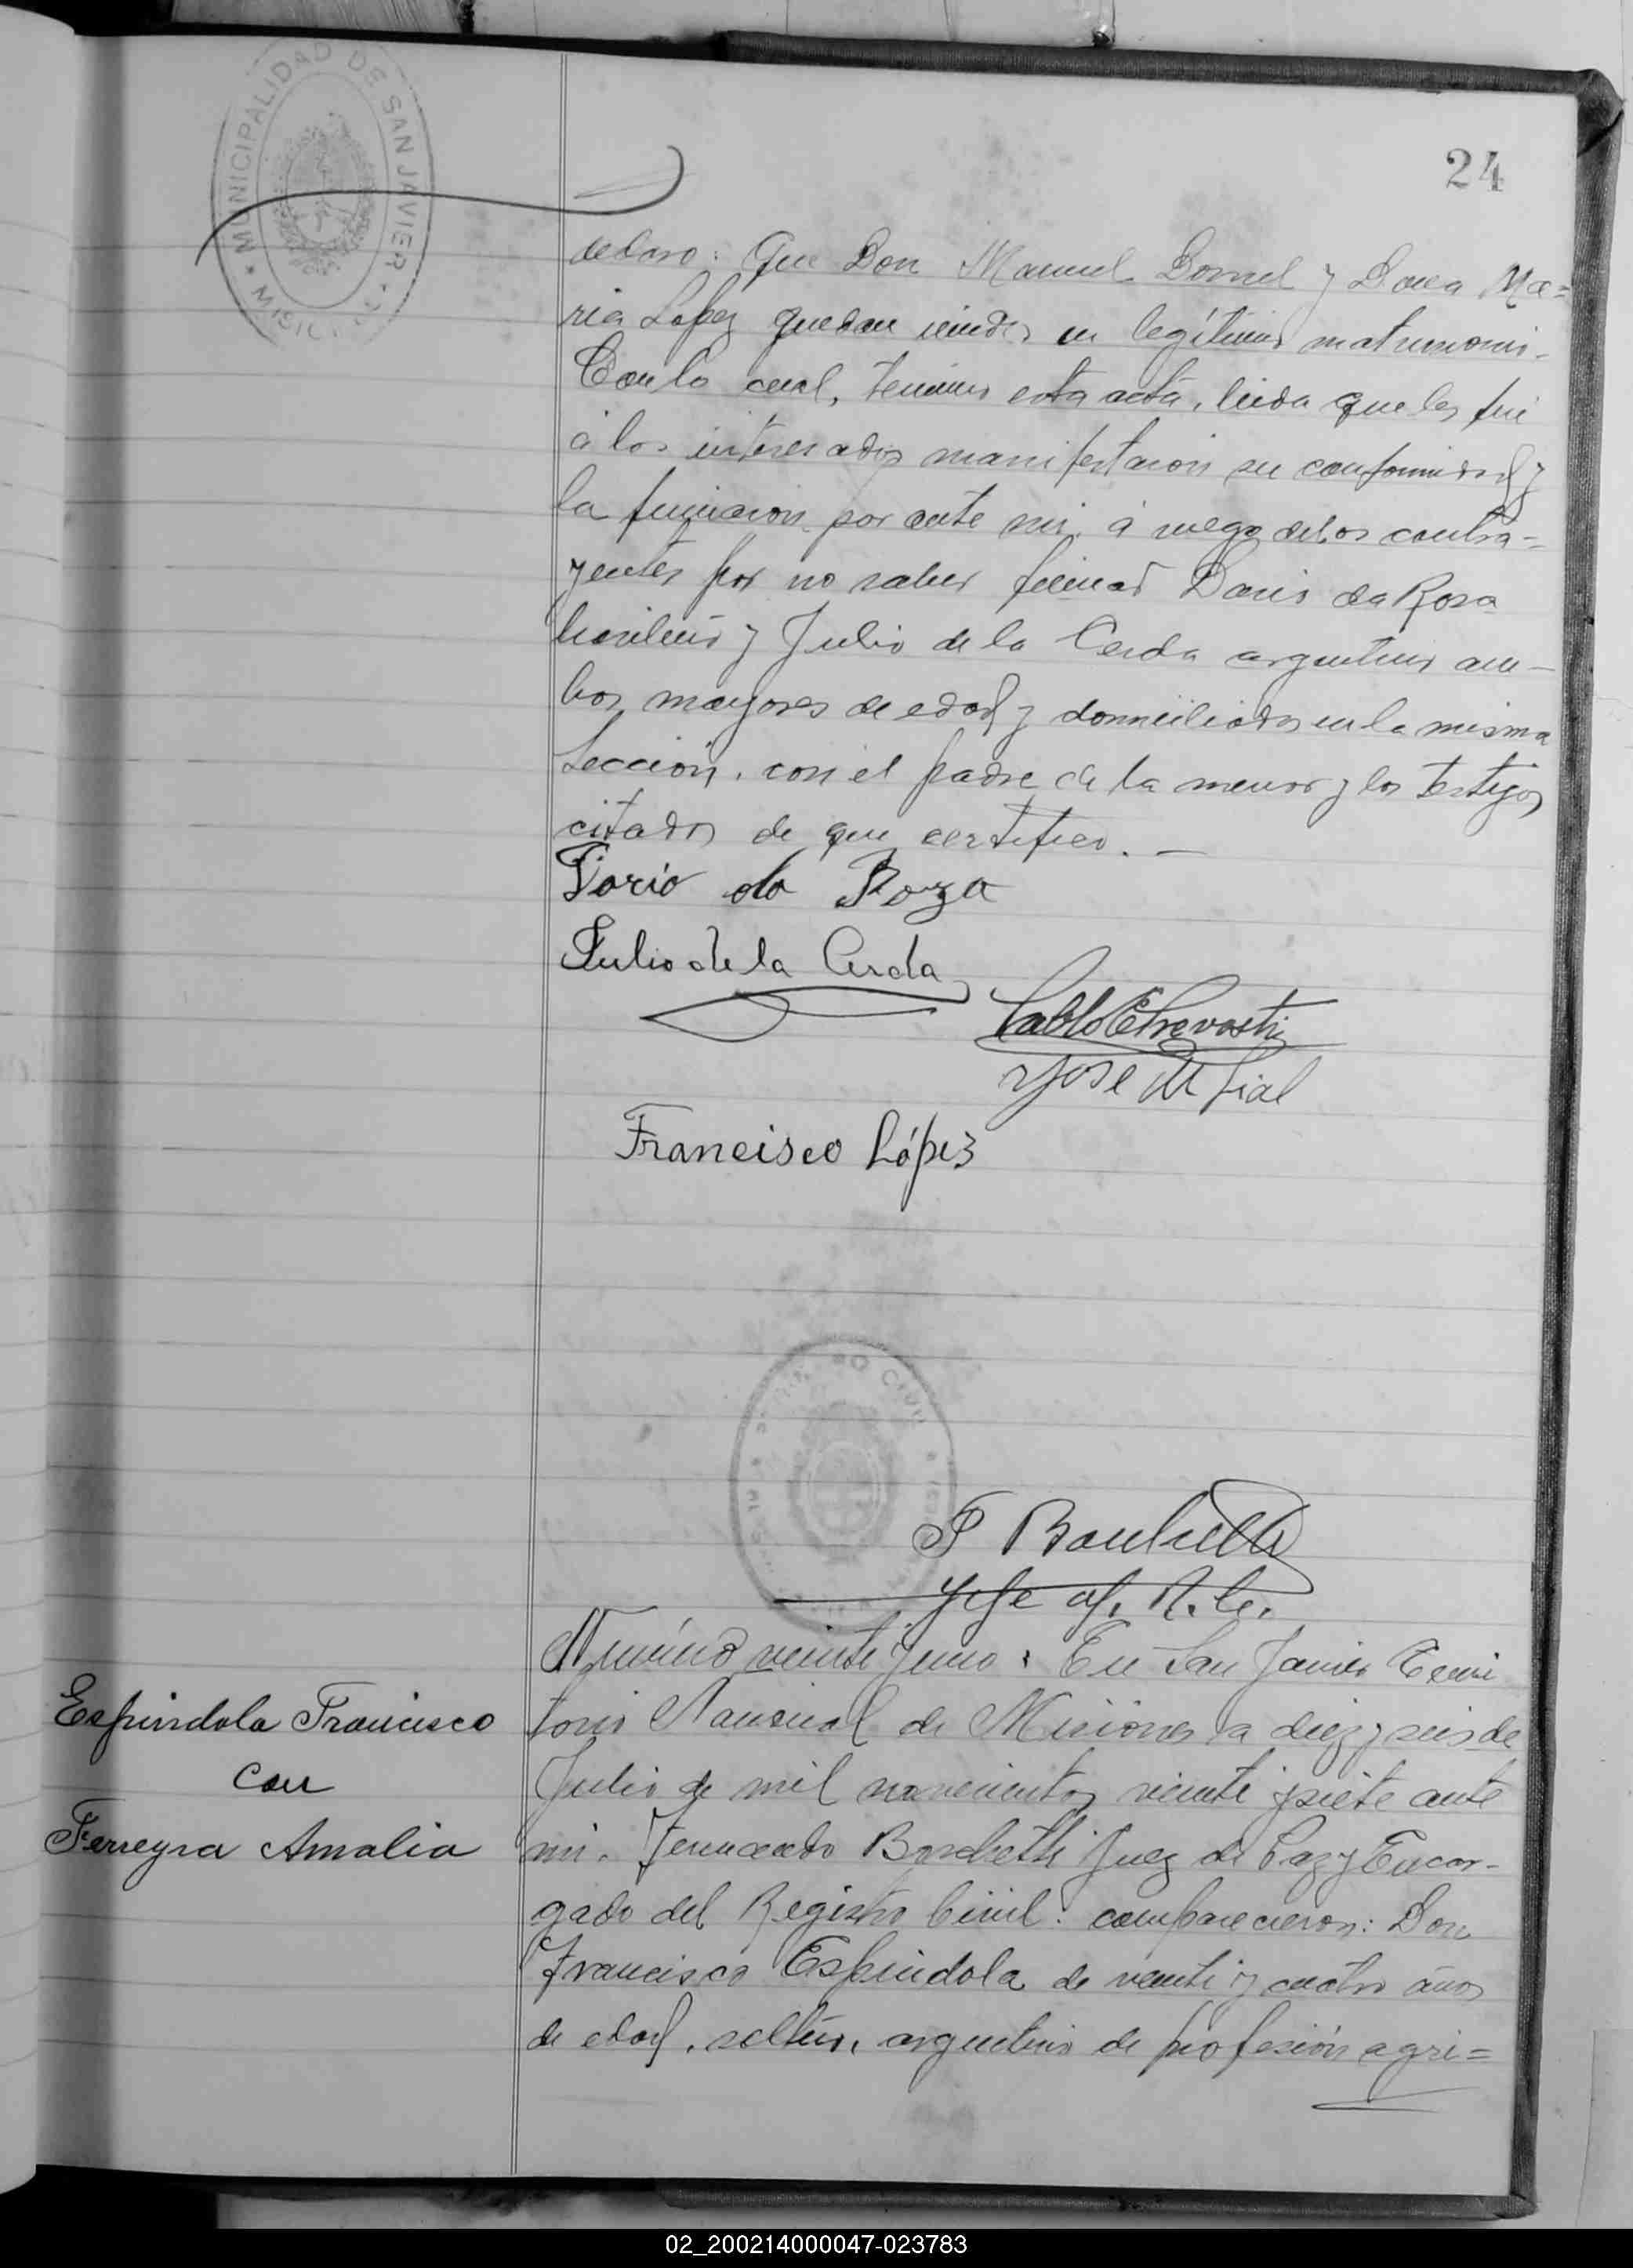 MUNICIPALIDAD DE SAN JAVIER
24
declaro: Que Don Manuel Dornel y Dona Ma=
ria Lopez quedan unidos en legítimo matrimonio.
Con lo cual, termino esta acta, leida que les fué
á los interesados manifestaron su conformidad y
la firmaron por ante mi, á ruego de los contra=
yentes por no saber firmar Dario da Rosa
brasilero y Julio de la Cerda argentino am-
bos mayores de edad y domiciliados en la misma
Sección, con el padre de la menor y los testigos
citados de que certifico. —
Dario da Roza
Julio de la Cerda
Pablo
Jose M
Francisco López
Jefe of. R. C.
Número veinte y uno: En San Javier Terri
torio Nacional de Misiones a diez y seis de
Espindola Francisco
con
Ferreyra Amalia
Julio de mil novecientos veinte y siete ante
mi. Fernando Juez de Paz y Encar-
gado del Registro Civil: comparecieron: Don
Francisco Espindola de veinte y cuatro años
de edad, soltero, argentino de profesión agri=
02_200214000047-023783